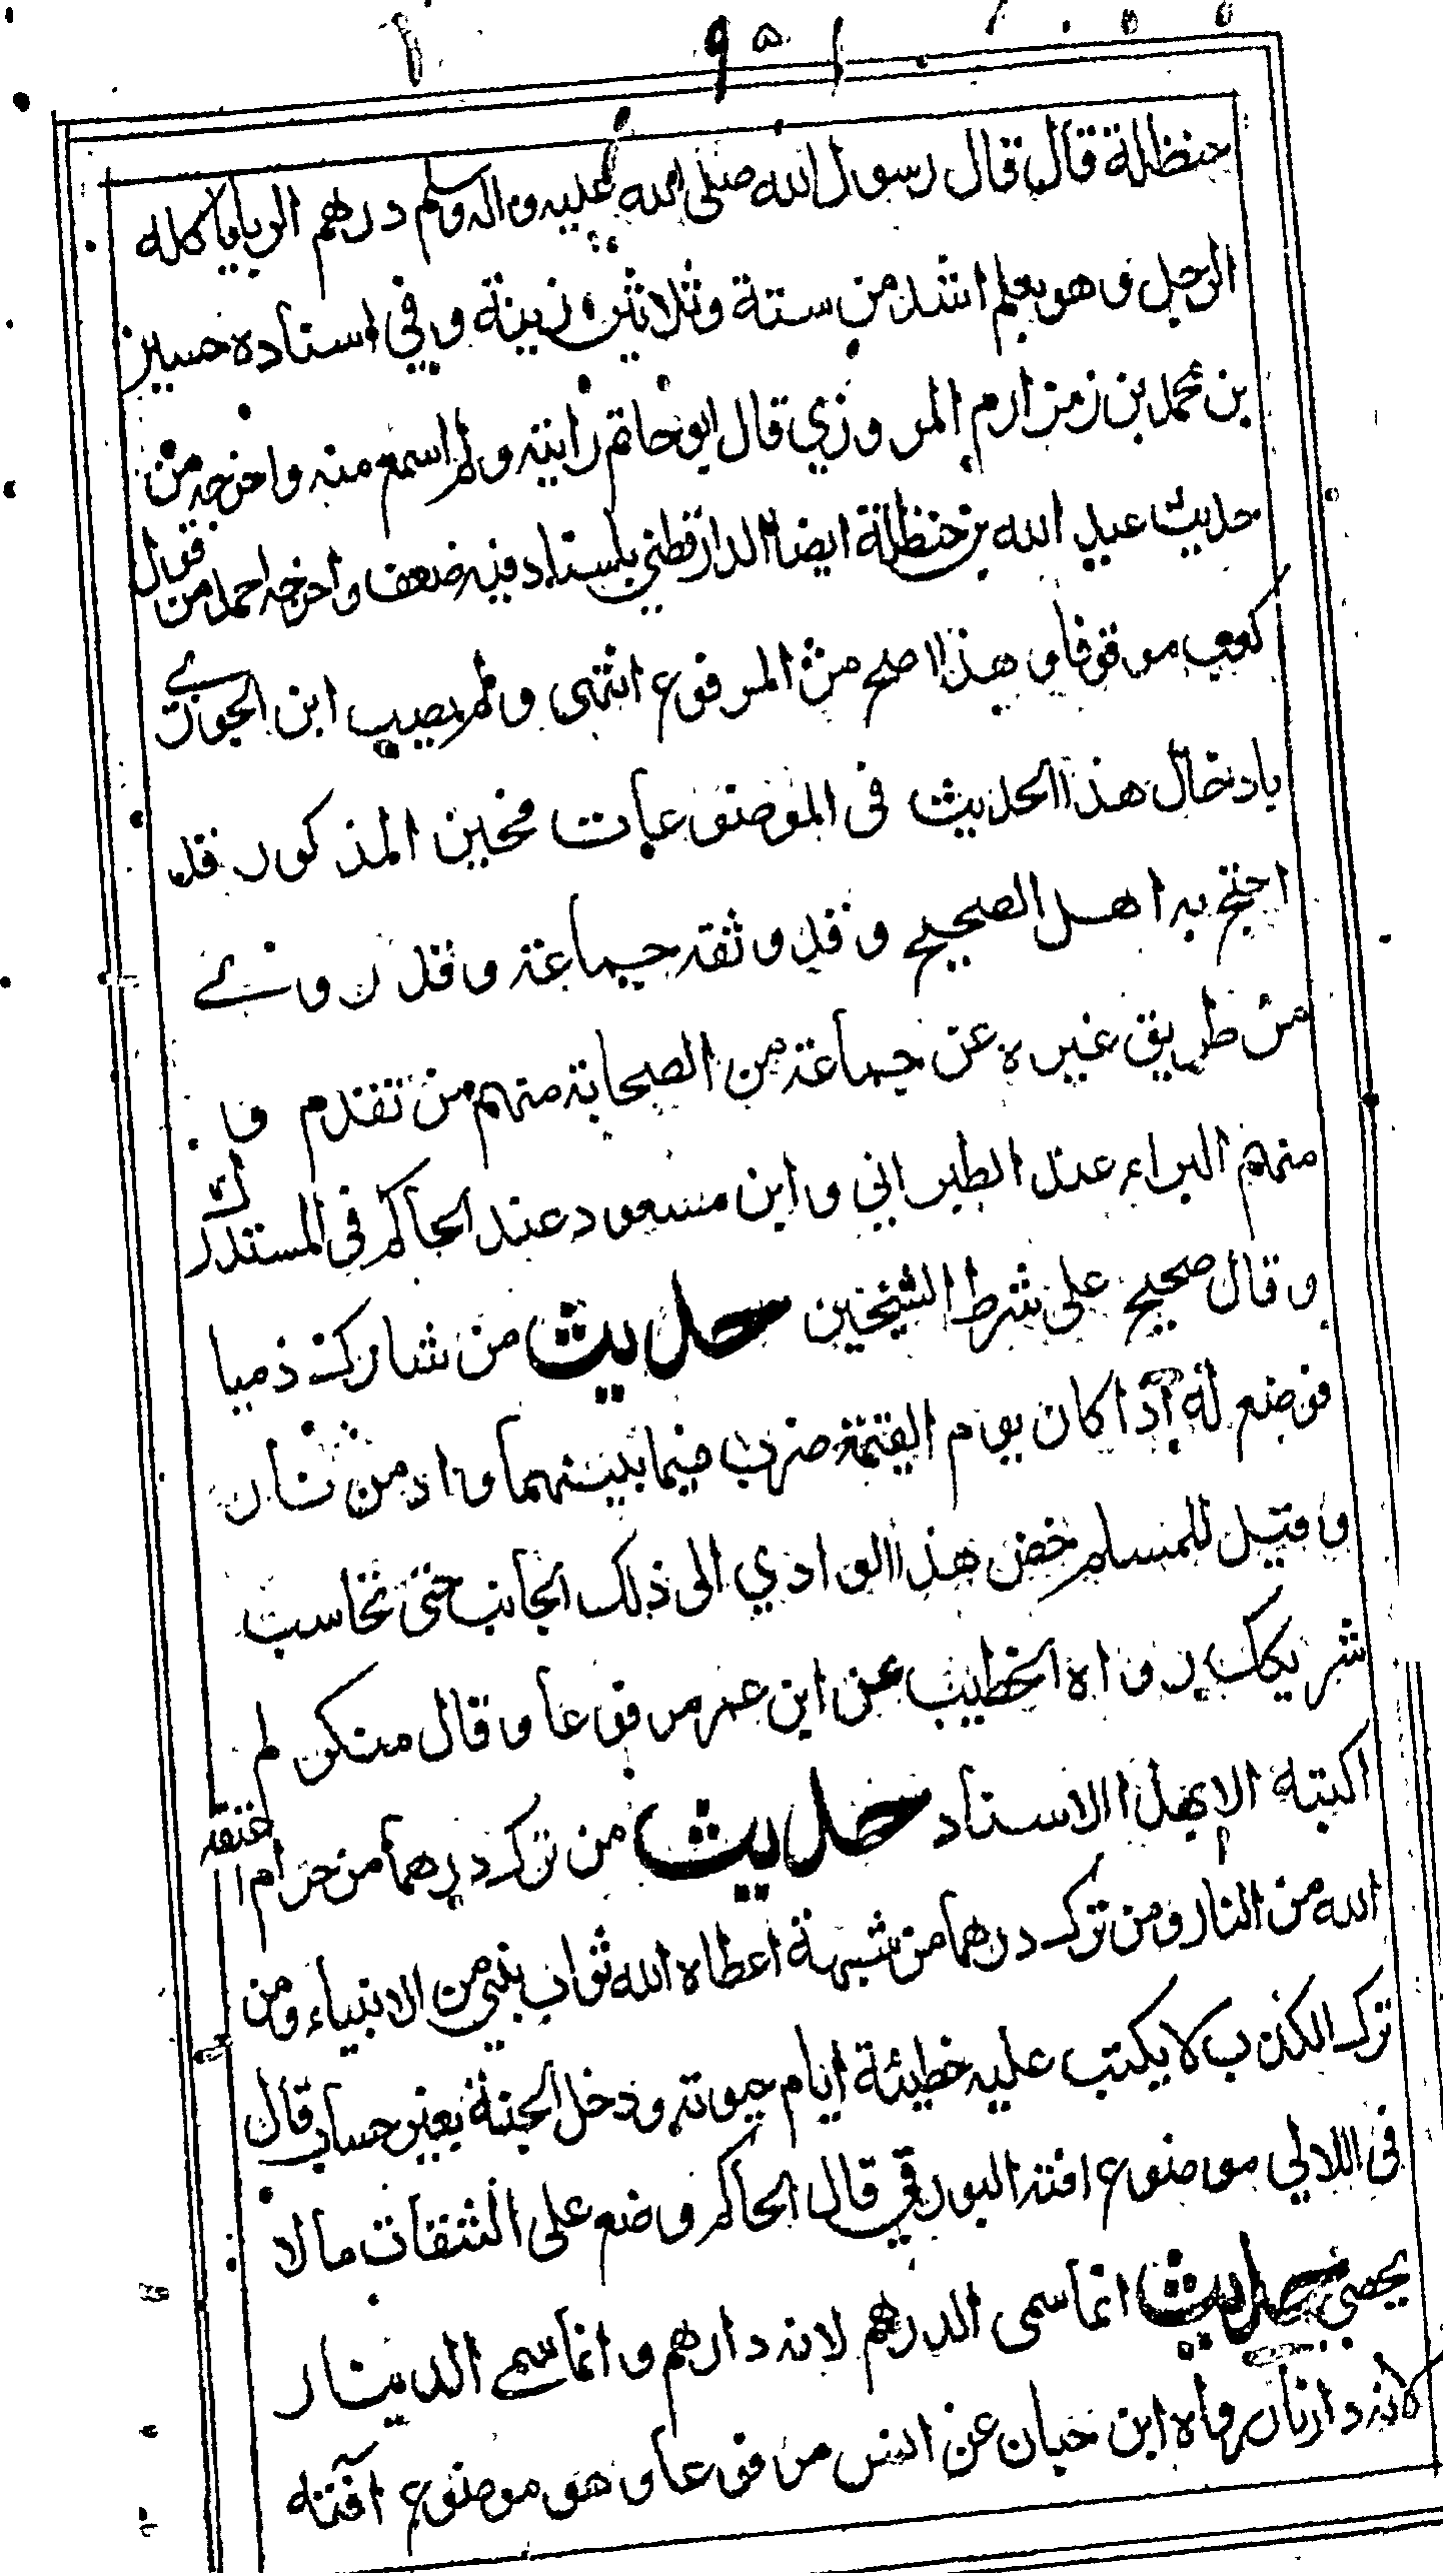 ٩٥
حنظلة قال قال رسول الله صلى الله عليه واله وسلم درهم الربا ياكله
الرجل وهو يعلم اشد من ستة وثلاثين زينة وفي اسناده حسين
بن محمد بن بهرام المروزي قال ابو حاتم رايته ولم اسمع منه واخرجه من
حديث عبد الله بن حنظلة ايضا الدارقطني باسناد فيه ضعف واخرجه احمد من قول
كعب موقوفا وهذا اصح من المرفوع انتهى ولم يصب ابن الجوزي
بادخال هذا الحديث في الموضوعات فحين المذكور قد
احتج به اهل الصحيح وقد وثقه جماعة وقد روي
من طريق غيره عن جماعة من الصحابة منهم من تقدم و
منهم البراء عند الطبراني وابن مسعود عند الحاكم في المستدرك
وقال صحيح على شرط الشيخين حديث من شارك ذميا
فوضع له اذا كان يوم القيمة ضرب فيما بينهما واد من نار
وقيل للمسلم خض هذا الوادي الى ذلك الجانب حتى تحاسب
شريكك رواه الخطيب عن ابن عمر مرفوعا وقال منكر لم
اكتبه الا بهذا الاسناد حديث من ترك درهما من حرام اعتقه
الله من النار ومن ترك درهما من شبهة اعطاه الله ثواب نبي من الانبياء ومن
ترك الكذب لا يكتب عليه خطيئة ايام حيوته ودخل الجنة بغير حساب قال
في اللالي موضوع افته البورقي قال الحاكم وضع على الثقات ما لا
يحصى حديث انما سمى الدرهم لانه دارهم وانما سمي الدينار
لانه دار نار رواه ابن حبان عن انس مرفوعا وهو موضوع آفته